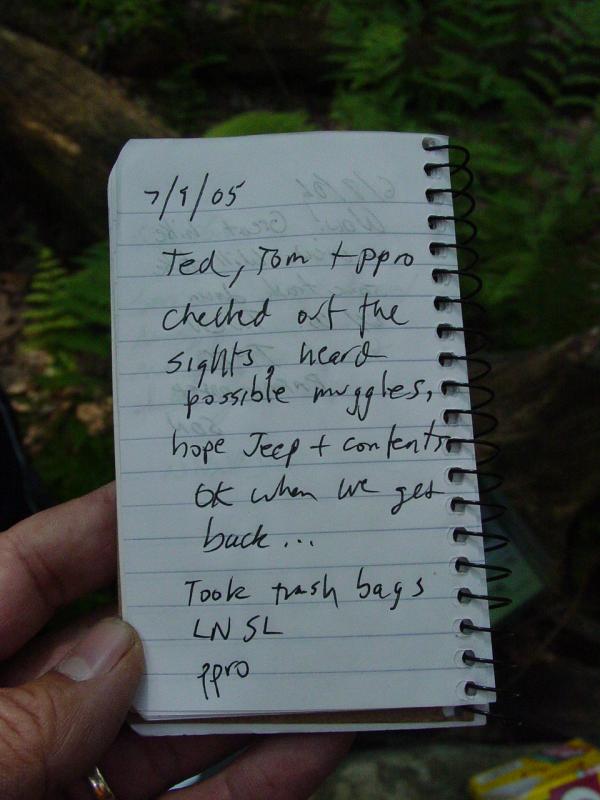 7/9/05
Ted, Tom + ppro
checked out the
sights, heard
possible muggles,
hope Jeep + contents
OK when we get
back...
Took trash bags
LN SL
ppro